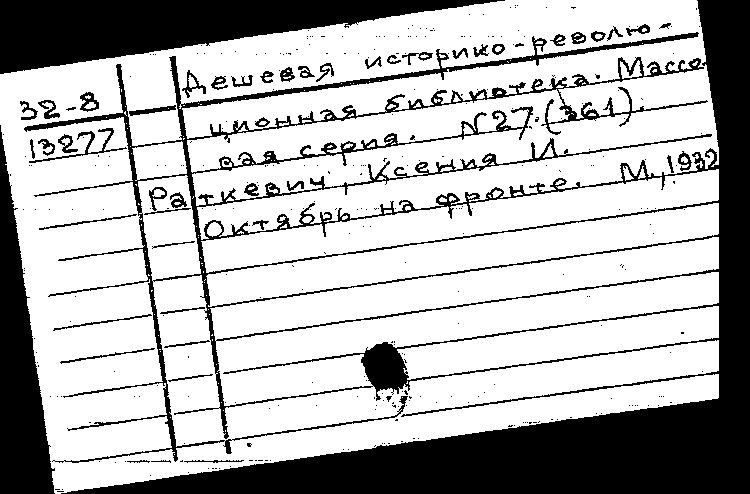 32-8
13277
Дешевая историко-револю-
ционная библиотека. Массо-
вая серия. N27.(361).
Раткевич, Ксения И.
Октябрь на фронте. М., 1932